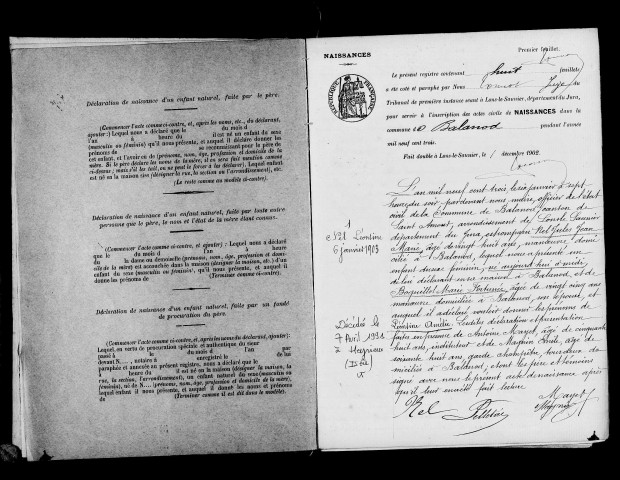 Déclaration de naissance d'un enfant naturel, faite par le père.
(Commencer l'acte comme ci-contre, et, après les noms, etc., du déclarant,
ajouter :) Lequel Nous a déclaré que le du mois d
l'an à heure du il est né un enfant du sexe
(masculin ou féminin) qu'il nous présente, et auquel il déclare donner les
prénoms de se reconnaissant pour le père de
cet enfant, et l'avoir eu de (prénoms, nom, âge, profession et domicile de la
mère. Si le père déclare les noms de la mère, il en sera fait mention comme
ci-dessus ; mais s'il les tait, on ne peut le forcer à les déclarer). Lequel enfant
est né en la maison sise (désigner la rue, la section ou l'arrondissement), etc.
(Le reste comme au modèle ci-contre).
Déclaration de naissance d'un enfant naturel, faite par toute autre
personne que le père, le nom et l'état de la mère étant connus.
(Commencer l'acte comme ci-contre, et ajouter) : Lequel Nous a déclaré
que le du mois d l'an à heure du
la dame ou demoiselle (prénoms, nom, âge, profession et domi-
cile de la mère) est accouchée dans la maison (désigner la maison), etc. d'un
enfant du sexe (masculin ou féminin), qu'il nous présente, et auquel il
donne les prénoms de (Terminer comme ci-contre).
Déclaration de naissance d'un enfant naturel, faite par un fondé
de procuration du père.
(Commencer l'acte comme ci-contre, et, après les noms etc. du déclarant, ajouter:)
Lequel, en vertu de procuration spéciale et authentique du sieur
passé à le du mois d l'an par
et enregistré le de laquelle
paraphée et annexée au présent registre, nous a déclaré que le
à heure du il est né dans la maison (désigner la maison, la
rue, la section, l'arrondissement), un enfant du sexe (masculin ou
féminin), né de N... (prénoms, nom, âge, profession et domicile de la mère)
lequel enfant il nous présente, et auquel il donne les nom et prénoms
de (Terminer comme il est dit dans le modèle).
Premier feuillet.
NAISSANCES
Le présent registre contenant huit feuillets
a été coté et paraphé par Nous Juge au
Tribunal de première instance séant à Lons-le-Saunier, département du Jura,
pour servir à l'inscription des actes civils de NAISSANCES dans la
commune de Balanod pendant l'année
mil neuf cent trois.
Fait double à Lons-le-Saunier, le 1 décembre 1902.
RÉPUBLIQUE FRANÇAISE
1
N° 1 Léontine
6 janvier 1903
L'an mil neuf cent trois, le six janvier à sept
heures du soir pardevant nous maire, officier de l'état
civil de la Commune de Balanod, canton de
Saint Amour, arrondissement de Lons le Saunier
département du Jura, est comparu Rel Jules Jean
Marie, âgé de vingt huit ans, manœuvre domi
cilié à Balanod, lequel nous a présenté un
enfant du sexe féminin, né aujourd'hui à midi,
de lui déclarant en sa maison à Balanod, et de
Marie Fortunée, âgée de vingt cinq ans
domiciliée à Balanod, son épouse, et
auquel il a déclaré vouloir donner les prénoms de
Léontine Amélie. Lesdites déclaration et présentation
faites en présence de Antoine Mayet, âgé de cinquante
huit ans, instituteur et de Paule, âgé de
soixante huit ans, garde champêtre, tous deux do
miciliés à Balanod, et ont les père et témoins
signé avec nous le présent acte de naissance après
qu'il leur en a été fait lecture
Décédée le
7 Avril 1931
à Meyriat
(Ain)
Rel Mayet